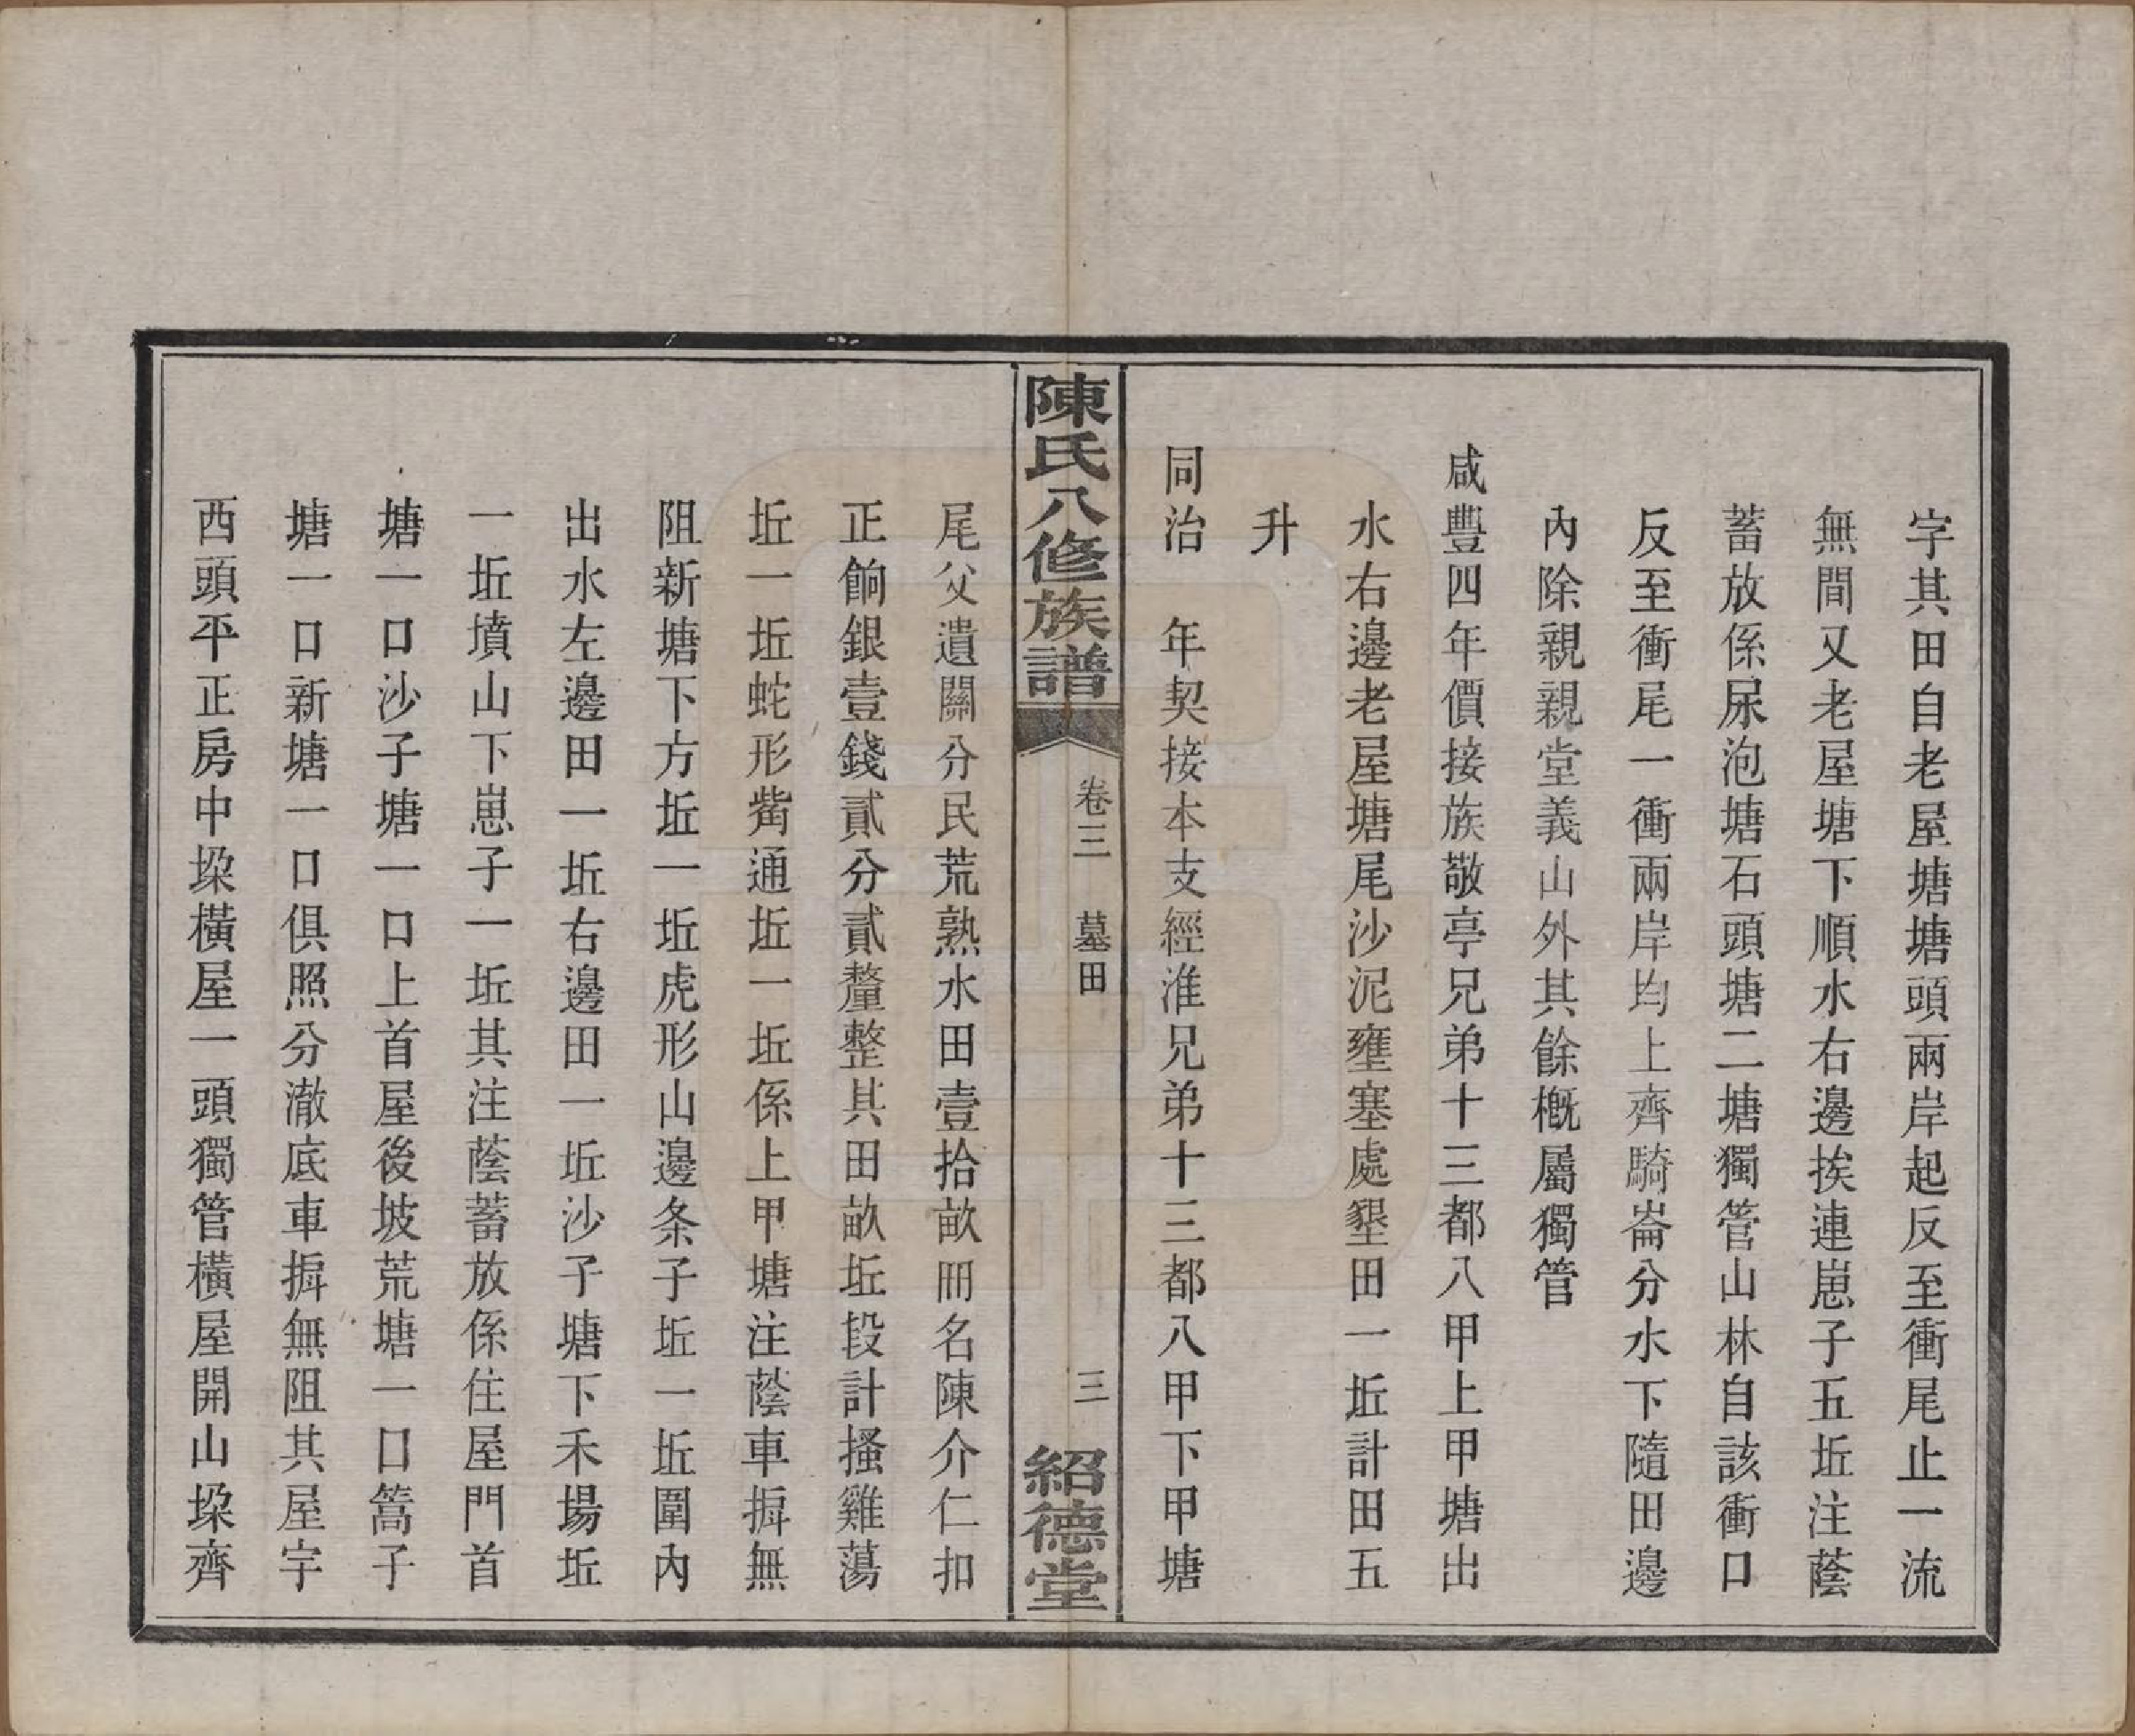 字其田自老屋塘塘頭兩岸起反至衝尾止一流
無間又老屋塘下順水右邊挨連崽子五坵注蔭
蓄放係尿泡塘石頭塘二塘獨管山林自該衝口
反至衝尾一衝兩岸均上齊騎崙分水下隨田邊
內除親親堂義山外其餘概屬獨管
咸豐四年價接族敬亭兄弟十三都八甲上甲塘出
水右邊老屋塘尾沙泥壅塞處墾田一坵計田五
升
同治 年契接本支經淮兄弟十三都八甲下甲塘
陳氏八修族譜
卷三 墓田
三
紹德堂
尾父遺關分民荒熟水田壹拾畝冊名陳介仁扣
正餉銀壹錢貳分貳釐整其田畝坵段計搔雞蕩
坵一坵蛇形觜通坵一坵係上甲塘注蔭車搙無
阻新塘下方坵一坵虎形山邊条子坵一坵圍內
出水左邊田一坵右邊田一坵沙子塘下禾場坵
一坵墳山下崽子一坵其注蔭蓄放係住屋門首
塘一口沙子塘一口上首屋後坡荒塘一口篙子
塘一口新塘一口俱照分澈底車搙無阻其屋宇
西頭平正房中垜橫屋一頭獨管橫屋開山垜齊